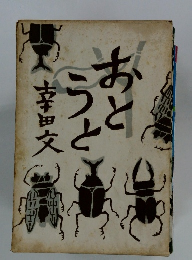 おとうと
幸田文